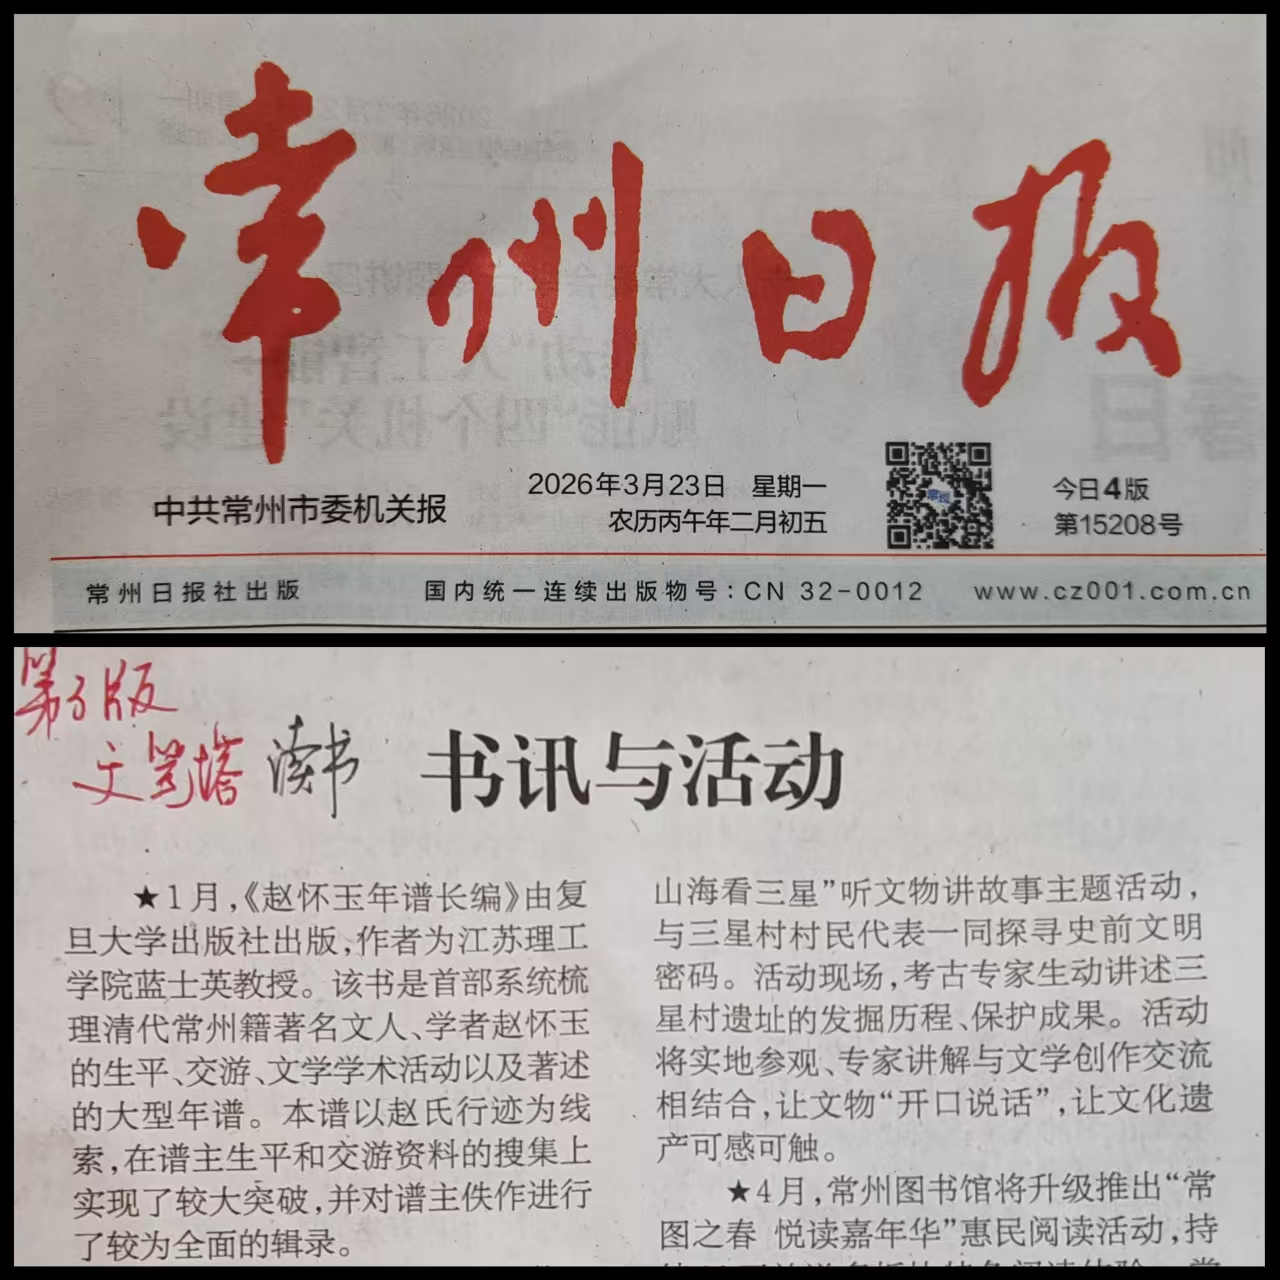 常州日报
中共常州市委机关报
2026年3月23日 星期一
农历丙午年二月初五
今日4版
第15208号
常州日报社出版
国内统一连续出版物号：CN 32-0012
www.cz001.com.cn
第3版
文笔塔 读书
书讯与活动
★1月，《赵怀玉年谱长编》由复
旦大学出版社出版，作者为江苏理工
学院蓝士英教授。该书是首部系统梳
理清代常州籍著名文人、学者赵怀玉
的生平、交游、文学学术活动以及著述
的大型年谱。本谱以赵氏行迹为线
索，在谱主生平和交游资料的搜集上
实现了较大突破，并对谱主佚作进行
了较为全面的辑录。
山海看三星”听文物讲故事主题活动，
与三星村村民代表一同探寻史前文明
密码。活动现场，考古专家生动讲述三
星村遗址的发掘历程、保护成果。活动
将实地参观、专家讲解与文学创作交流
相结合，让文物“开口说话”，让文化遗
产可感可触。
★4月，常州图书馆将升级推出“常
图之春 悦读嘉年华”惠民阅读活动，持